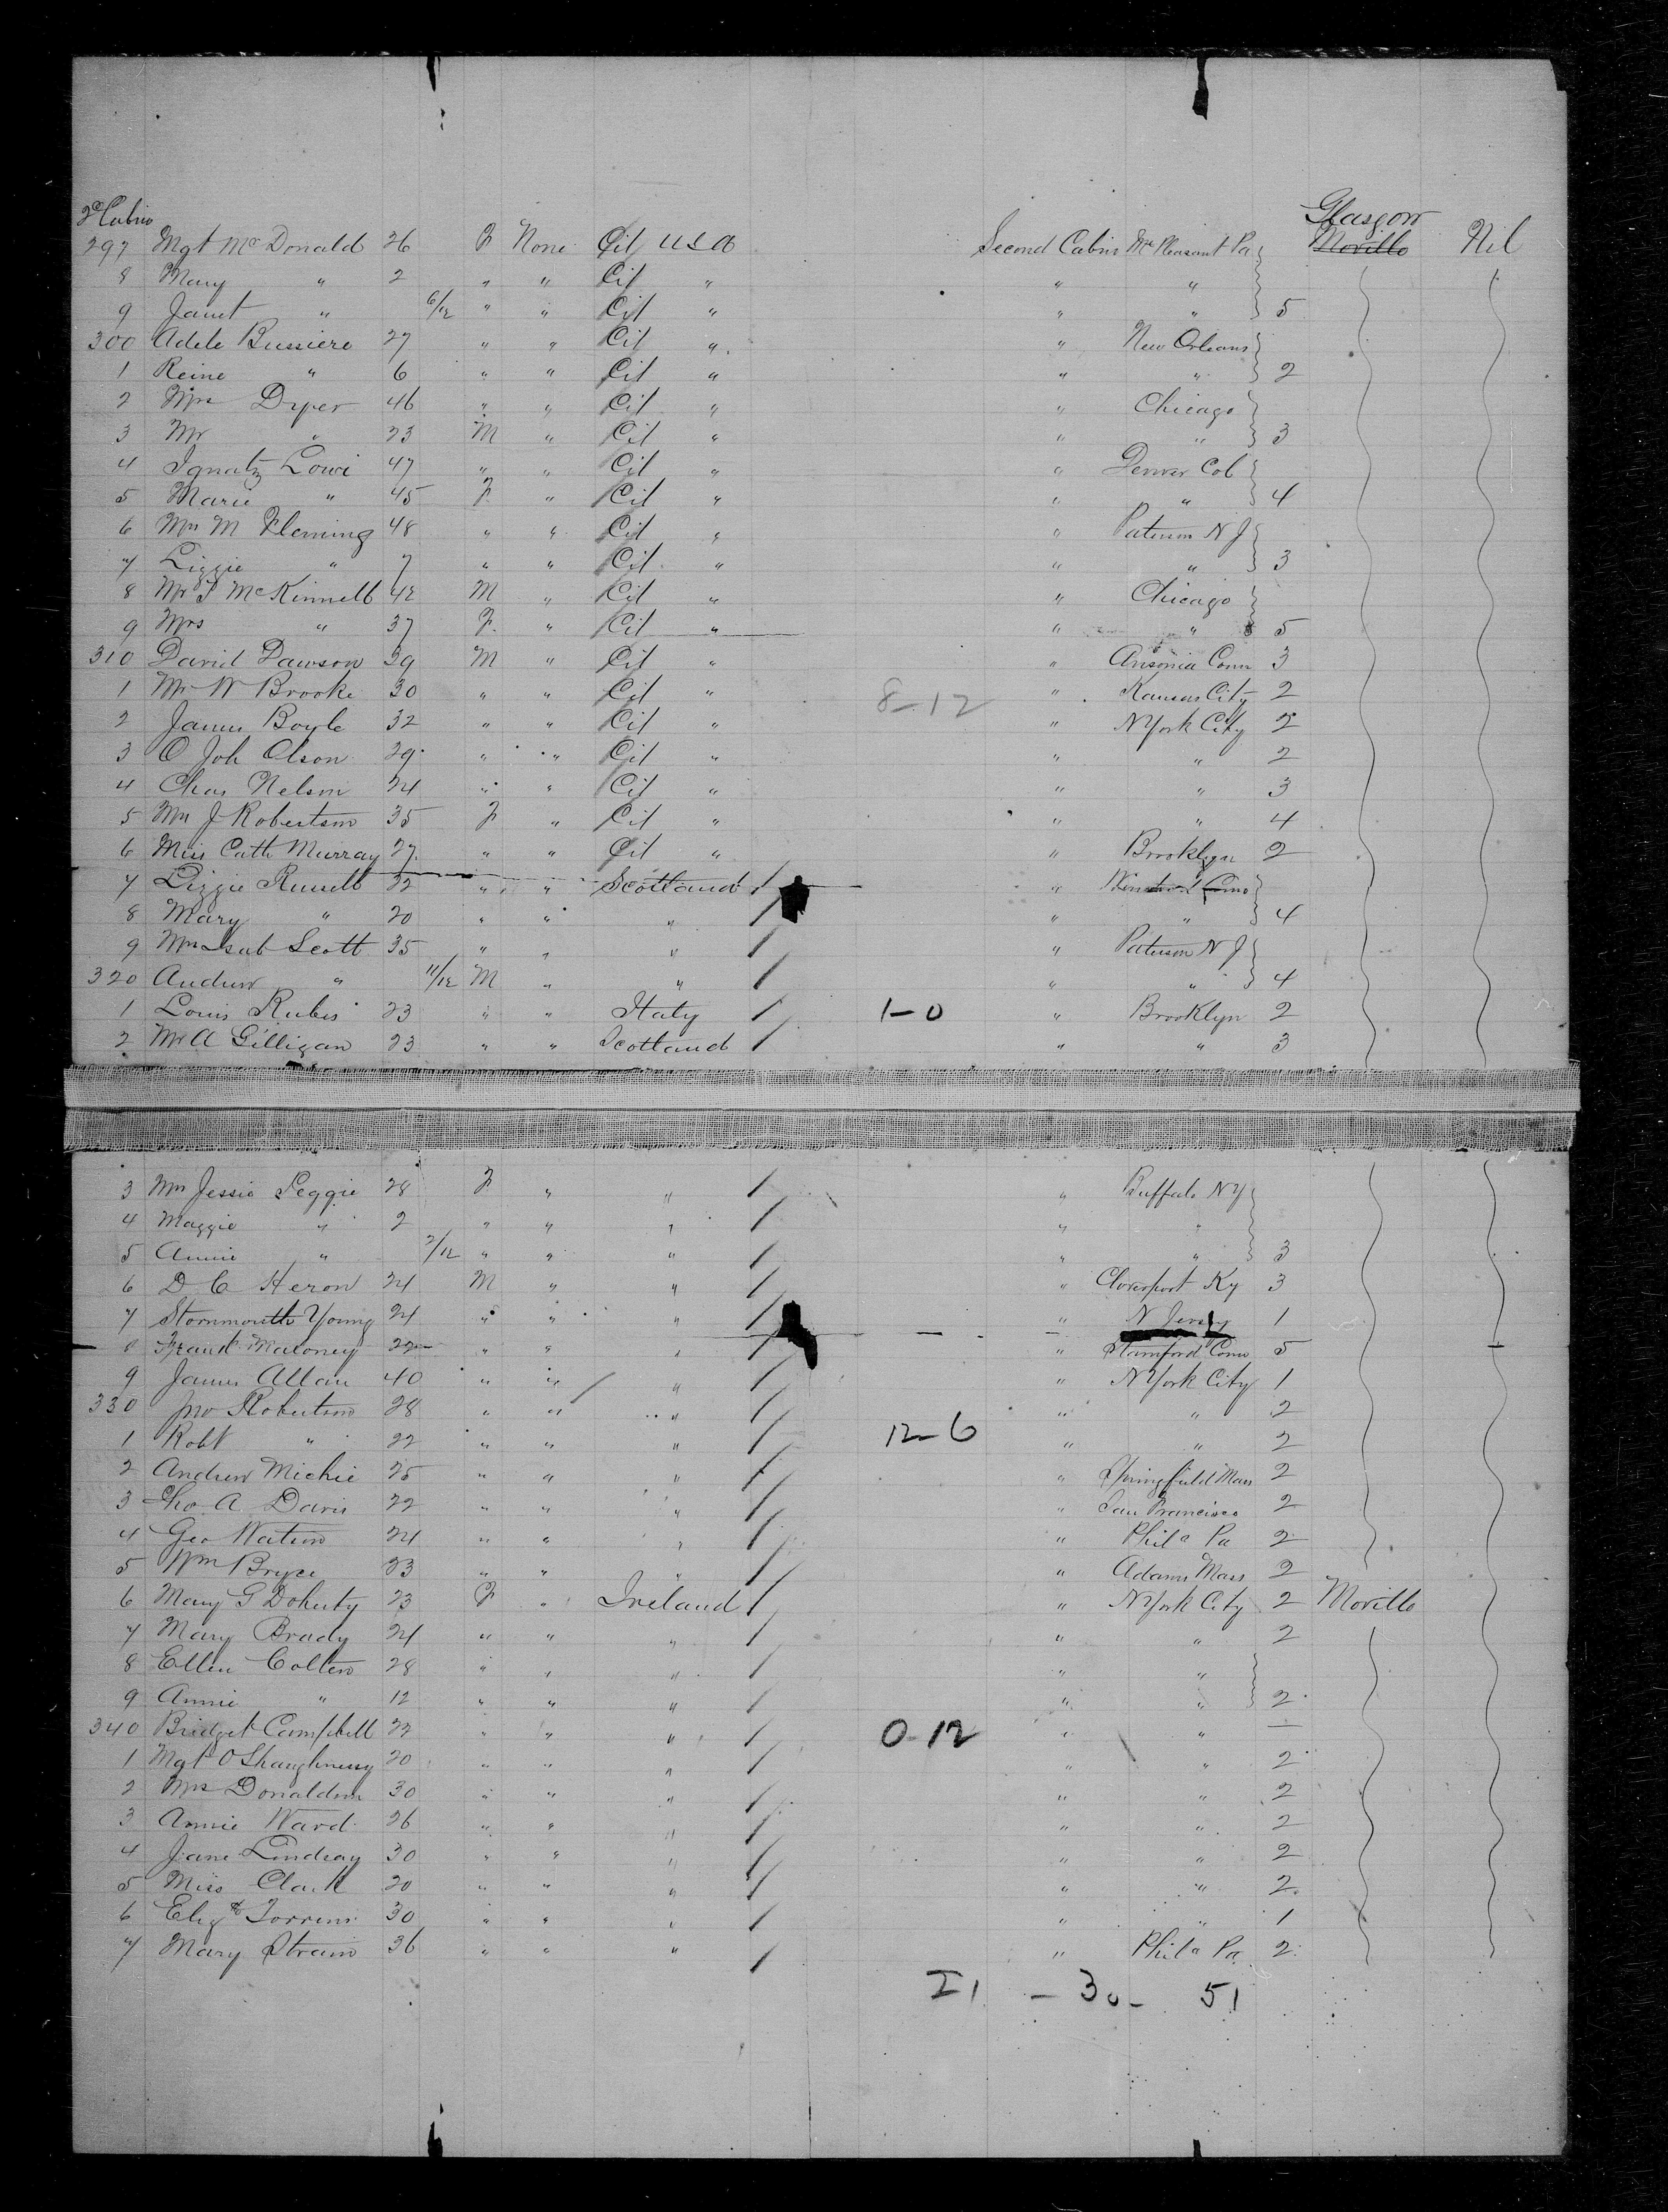 2d Cabin
Glasgow
297 Mgt McDonald 26 F None Cit USA Second Cabin Mt Pleasant Pa Moville Nil
8 Mary " 2 " " Cit " " "
9 Janet " 6/12 " " Cit " " " 5
300 Adele Bussiere 27 " " Cit " " New Orleans
1 Reine " 6 " " Cit " " " 2
2 Mrs Dyer 46 " " Cit " " Chicago
3 Mr " 23 M " Cit " " " 3
4 Ignatz Lowi 47 " " Cit " " Denver Col
5 Marie " 45 F " Cit " " " 4
6 Mrs M Fleming 48 " " Cit " " Paterson N J
7 Lizzie " 7 " " Cit " " " 3
8 Mr J McKinnell 42 M " Cit " " Chicago
9 Mrs " 37 F " Cit " " " 5
310 David Dawson 39 M " Cit " " Ansonia Conn 3
1 Mr W Brooke 30 " " Cit " 8-12 " Kansas City 2
2 James Boyle 32 " " Cit " " N York City 2
3 O Joh Olson 29 " " Cit " " " 2
4 Chas Nelson 24 " " Cit " " " 3
5 Mrs J Robertson 35 F " Cit " " " 4
6 Miss Cath Murray 27 " " Cit " " Brooklyn 2
7 Lizzie Russell 22 " " Scotland / "
8 Mary " 20 " " " / " " 4
9 Mrs Isab Scott 35 " " " / " Paterson N J
320 Andrew " 11/12 M " " / " " 4
1 Louis Rubis 23 " " Italy / 1-0 " Brooklyn 2
2 Mr A Gilligan 23 " " Scotland / " " 3
3 Mrs Jessie Peggie 28 F " " / " Buffalo NY
4 Maggie " 2 " " " / " "
5 Annie " 2/12 " " " / " " 3
6 D C Heron 24 M " " / " Cloverport Ky 3
7 Stormmouth Young 24 " " " / " N Jersey 1
8 Frank Maloney 22 " " " / " Stamford Conn 5
9 James Allan 40 " " " / " N York City 1
330 Jno Robertson 28 " " " / " " 2
1 Robt " 22 " " " / 12-6 " " 2
2 Andrew Michie 25 " " " / " Springfield Mass 2
3 Tho A Davis 22 " " " / " San Francisco 2
4 Geo Watson 24 " " " / " Phila Pa 2
5 Wm Bryce 23 " " " / " Adams Mass 2
6 Mary G Doherty 23 F " Ireland / " N York City 2 Moville
7 Mary Brady 24 " " " / " " 2
8 Ellen Colten 28 " " " / " "
9 Annie " 12 " " " / " " 2
340 Bridget Campbell 22 " " " / 0-12 " " —
1 Mgt O'Shaughnessy 20 " " " / " " 2
2 Mrs Donaldson 30 " " " / " " 2
3 Annie Ward 26 " " " / " " 2
4 Jane Lindsay 30 " " " / " " 2
5 Miss Clark 20 " " " / " " 2
6 Elizth Torrens 30 " " " / " " 1
7 Mary Strain 36 " " " / " Phila Pa 2
21 - 30 - 51